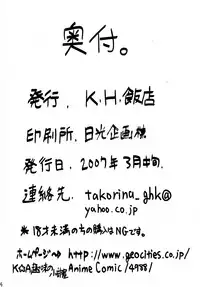 奥付。
発行. K.H.飯店
印刷所. 日光企画様
発行日. 2007年3月中旬.
連絡先. takorina_ghk@
yahoo.co.jp
※18才未満のもの購入はNGです。
ホームページ→ http://www.geocities.co.jp/
AnimeComic/4988/